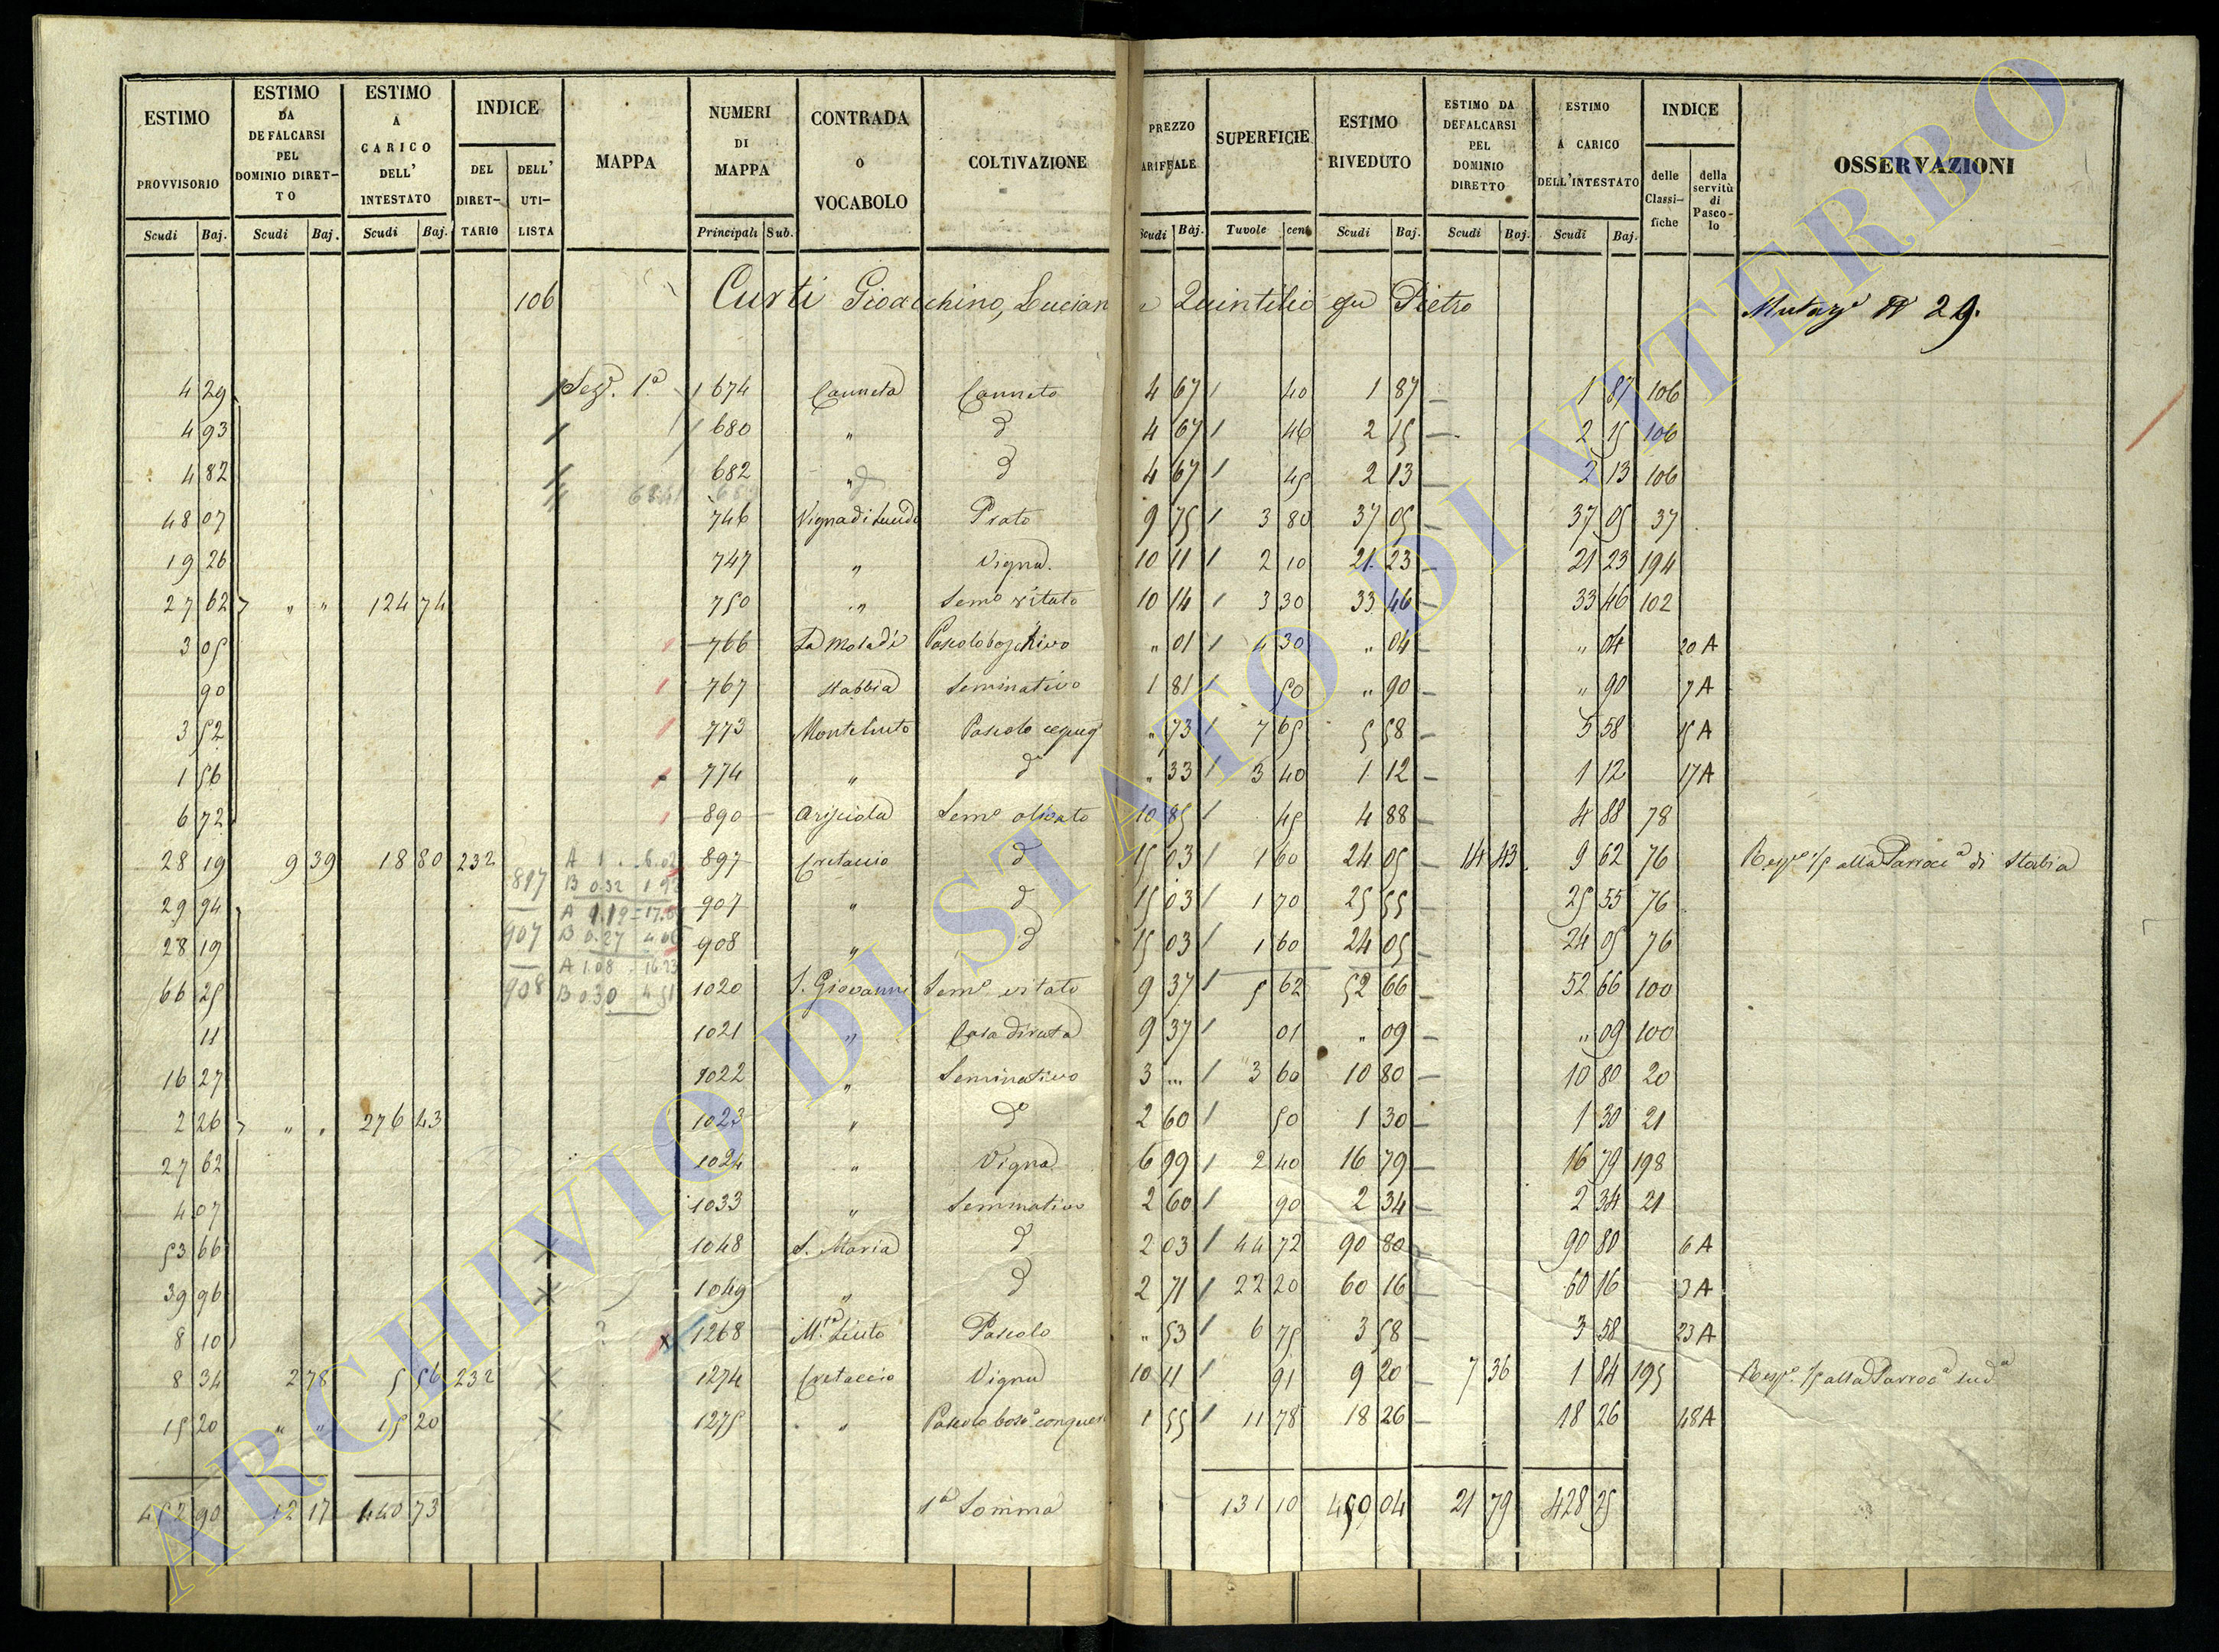 ESTIMO PROVVISORIO Scudi Baj. | ESTIMO DA DEFALCARSI PEL DOMINIO DIRET-TO Scudi Baj. | ESTIMO A CARICO DELL' INTESTATO Scudi Baj. | INDICE DEL DIRET-TARIO DELL' UTI-LISTA | MAPPA | NUMERI DI MAPPA Principali Sub. | CONTRADA O VOCABOLO | COLTIVAZIONE | PREZZO ARIFFALE Scudi Baj. | SUPERFICIE Tavole cent. | ESTIMO RIVEDUTO Scudi Baj. | ESTIMO DA DEFALCARSI PEL DOMINIO DIRETTO Scudi Baj. | ESTIMO A CARICO DELL'INTESTATO Scudi Baj. | INDICE delle Classi-fiche della servitù di Pasco-lo | OSSERVAZIONI
106 Curti Gioacchino, Lucian e Quintilio qu Pietro Mutaz.e N 29.
4 29 Sez. 1a 674 Canneta Canneto 4 67 40 1 87 — 1 87 106
4 93 680 " d 4 67 46 2 15 — 2 15 106
4 82 682 " d 4 67 45 2 13 — 2 13 106
48 07 746 Vigna di Prato 9 75 3 80 37 05 — 37 05 37
19 26 747 " Vigna 10 11 2 10 21 23 — 21 23 194
27 62 " " 124 74 750 " Semo vitato 10 14 3 30 33 46 — 33 46 102
3 05 766 La Mola di Pascolo boschivo " 01 4 30 " 04 — " 04 20 A
90 767 Stabbia Seminativo 1 81 50 " 90 — " 90 7 A
3 52 773 Pascolo " 73 7 65 5 58 — 5 58 15 A
1 56 774 " d " 33 3 40 1 12 — 1 12 17 A
6 72 890 Semo olivato 10 85 45 4 88 — 4 88 78
28 19 9 39 18 80 232 897 Cretaccio d 15 03 1 60 24 05 — 14 43 9 62 76 1/5 alla Parroca di Stabia
29 94 907 " d 15 03 1 70 25 55 — 25 55 76
28 19 908 " d 15 03 1 60 24 05 — 24 05 76
66 25 1020 S. Giovanni Semo vitato 9 37 5 62 52 66 — 52 66 100
11 1021 " Casa diruta 9 37 01 " 09 — " 09 100
16 27 1022 " Seminativo 3 ... 3 60 10 80 — 10 80 20
2 26 " " 276 43 1023 " do 2 60 50 1 30 — 1 30 21
27 62 1024 " Vigna 6 99 2 40 16 79 — 16 79 198
4 07 1033 " Seminativo 2 60 90 2 34 — 2 34 21
53 66 1048 S. Maria d 2 03 44 72 90 80 — 90 80 6 A
39 96 1049 " d 2 71 22 20 60 16 — 60 16 3 A
8 10 1268 Pascolo " 53 6 75 3 58 — 3 58 23 A
8 34 2 78 5 56 232 1274 Cretaccio Vigna 10 11 91 9 20 — 7 36 1 84 195 1/5 alla Parroca
15 20 " " 15 20 1275 " Pascolo 1 55 11 78 18 26 — 18 26 48 A
452 90 12 17 440 73 1a Somma 131 10 450 04 21 79 428 25
897 A 1 . 6.02
B 0.32 1.92
907 A 1.19
B 0.27 4.06
908 A 1.08 16.23
B 0.30 4.51
ARCHIVIO DI STATO DI VITERBO